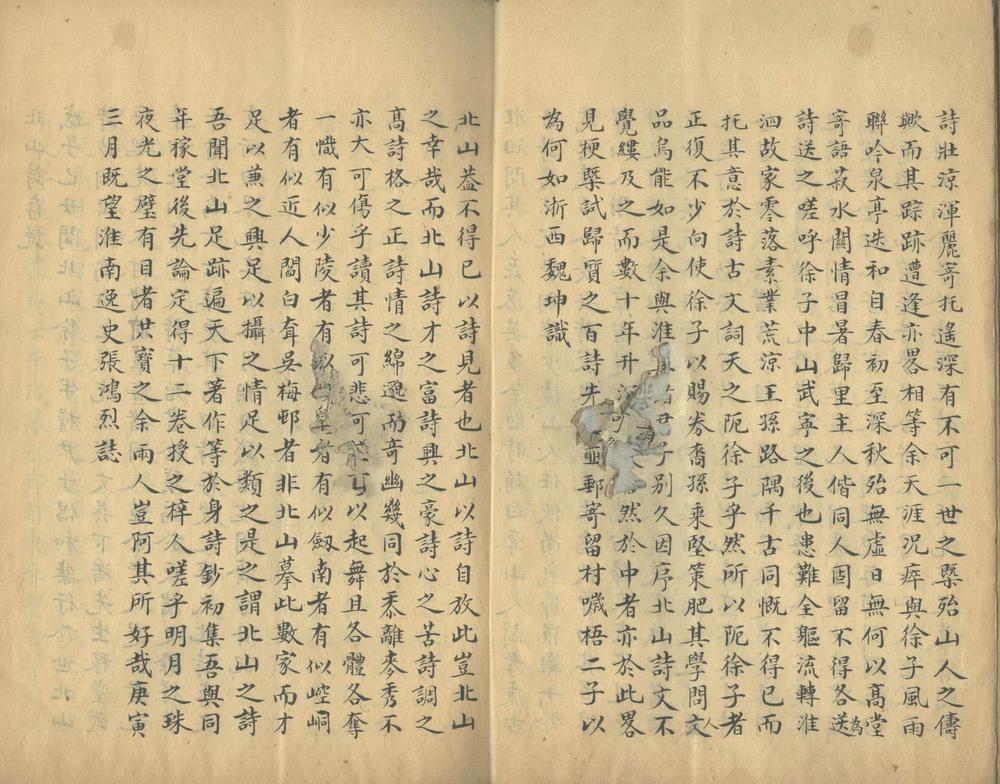 詩壯涼渾麗寄托遙深有不可一世之槩殆山人之儔
歟而其踪跡遭逢亦畧相等余天涯況瘁與徐子風雨
聯吟泉亭迭和自春初至深秋殆無虛日無何以高堂
寄語菽水關情冒暑歸里主人偕同人固留不得各送為
詩送之嗟呼徐子中山武寧之後也患難全軀流轉淮
泗故家零落素業荒涼王孫路隅千古同慨不得已而
托其意於詩古文詞天之阨徐子乎然所以阨徐子者
正復不少向使徐子以賜券喬孫乘堅策肥其學問文人
品烏能如是余與淮子別久因序北山詩文不
覺縷及之而數十年升然於中者亦於此畧
見梗槩試歸質之百詩先郵寄留村嘰梧二子以
為何如浙西魏坤識
北山葢不得已以詩見者也北山以詩自放此豈北山
之幸哉而北山詩才之富詩興之豪詩心之苦詩調之
高詩格之正詩情之綿邈勁奇幽幾同於黍離麥秀不
亦大可傷乎讀其詩可悲可可以起舞且各體各奪
一幟有似少陵者有者有似劔南者有似崆峒
者有似近人閻白耷吳梅邨者非北山摹此數家而才
足以兼之興足以攝之情足以類之是之謂北山之詩
吾聞北山足跡遍天下著作等於身詩鈔初集吾與同
年稼堂後先論定得十二卷授之梓人嗟乎明月之珠
夜光之璧有目者共寶之余兩人豈阿其所好哉庚寅
三月既望淮南逸史張鴻烈誌